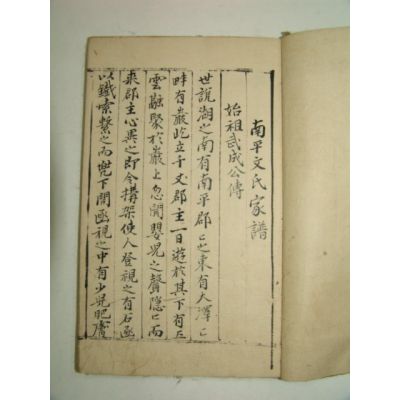 南平文氏家譜
始祖武成公傳
世說湖之南有南平郡〻之東有大澤〻
畔有巖屹立千丈郡主一日遊於其下有五
雲融聚於巖上忽聞嬰兒之聲隱〻而
來郡主心異之即令搆架使人登視之有石函
以鐵索繫之而兜下開函視之中有少兒肥膚